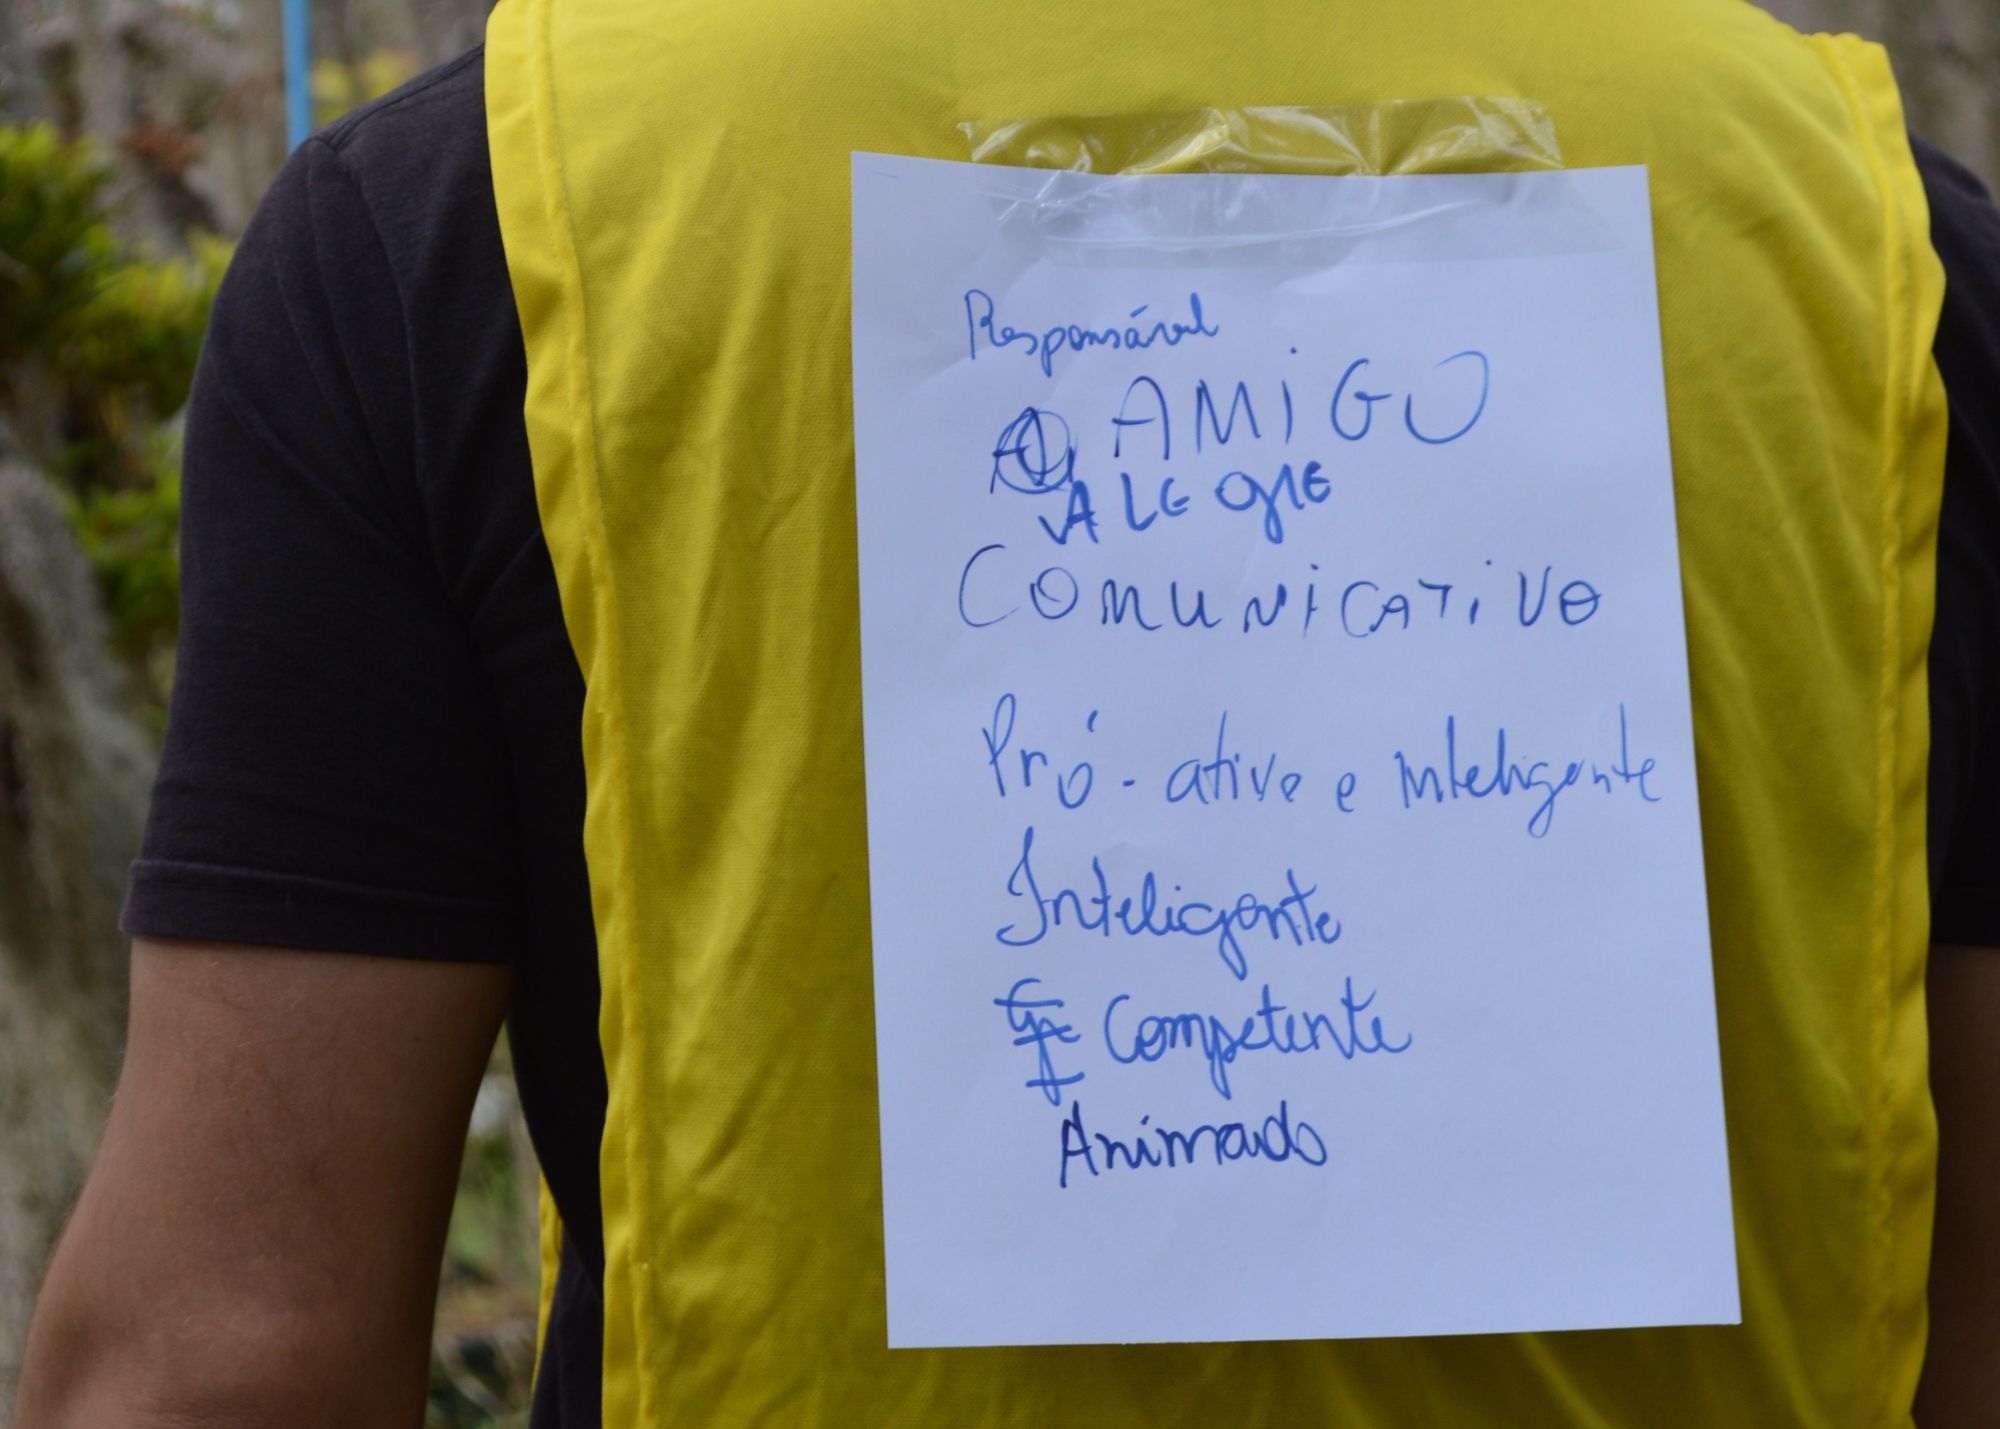 Responsável
AMIGO
ALEGRE
COMUNICATIVO
Pró-ativo e inteligente
Inteligente
Competente
Animado